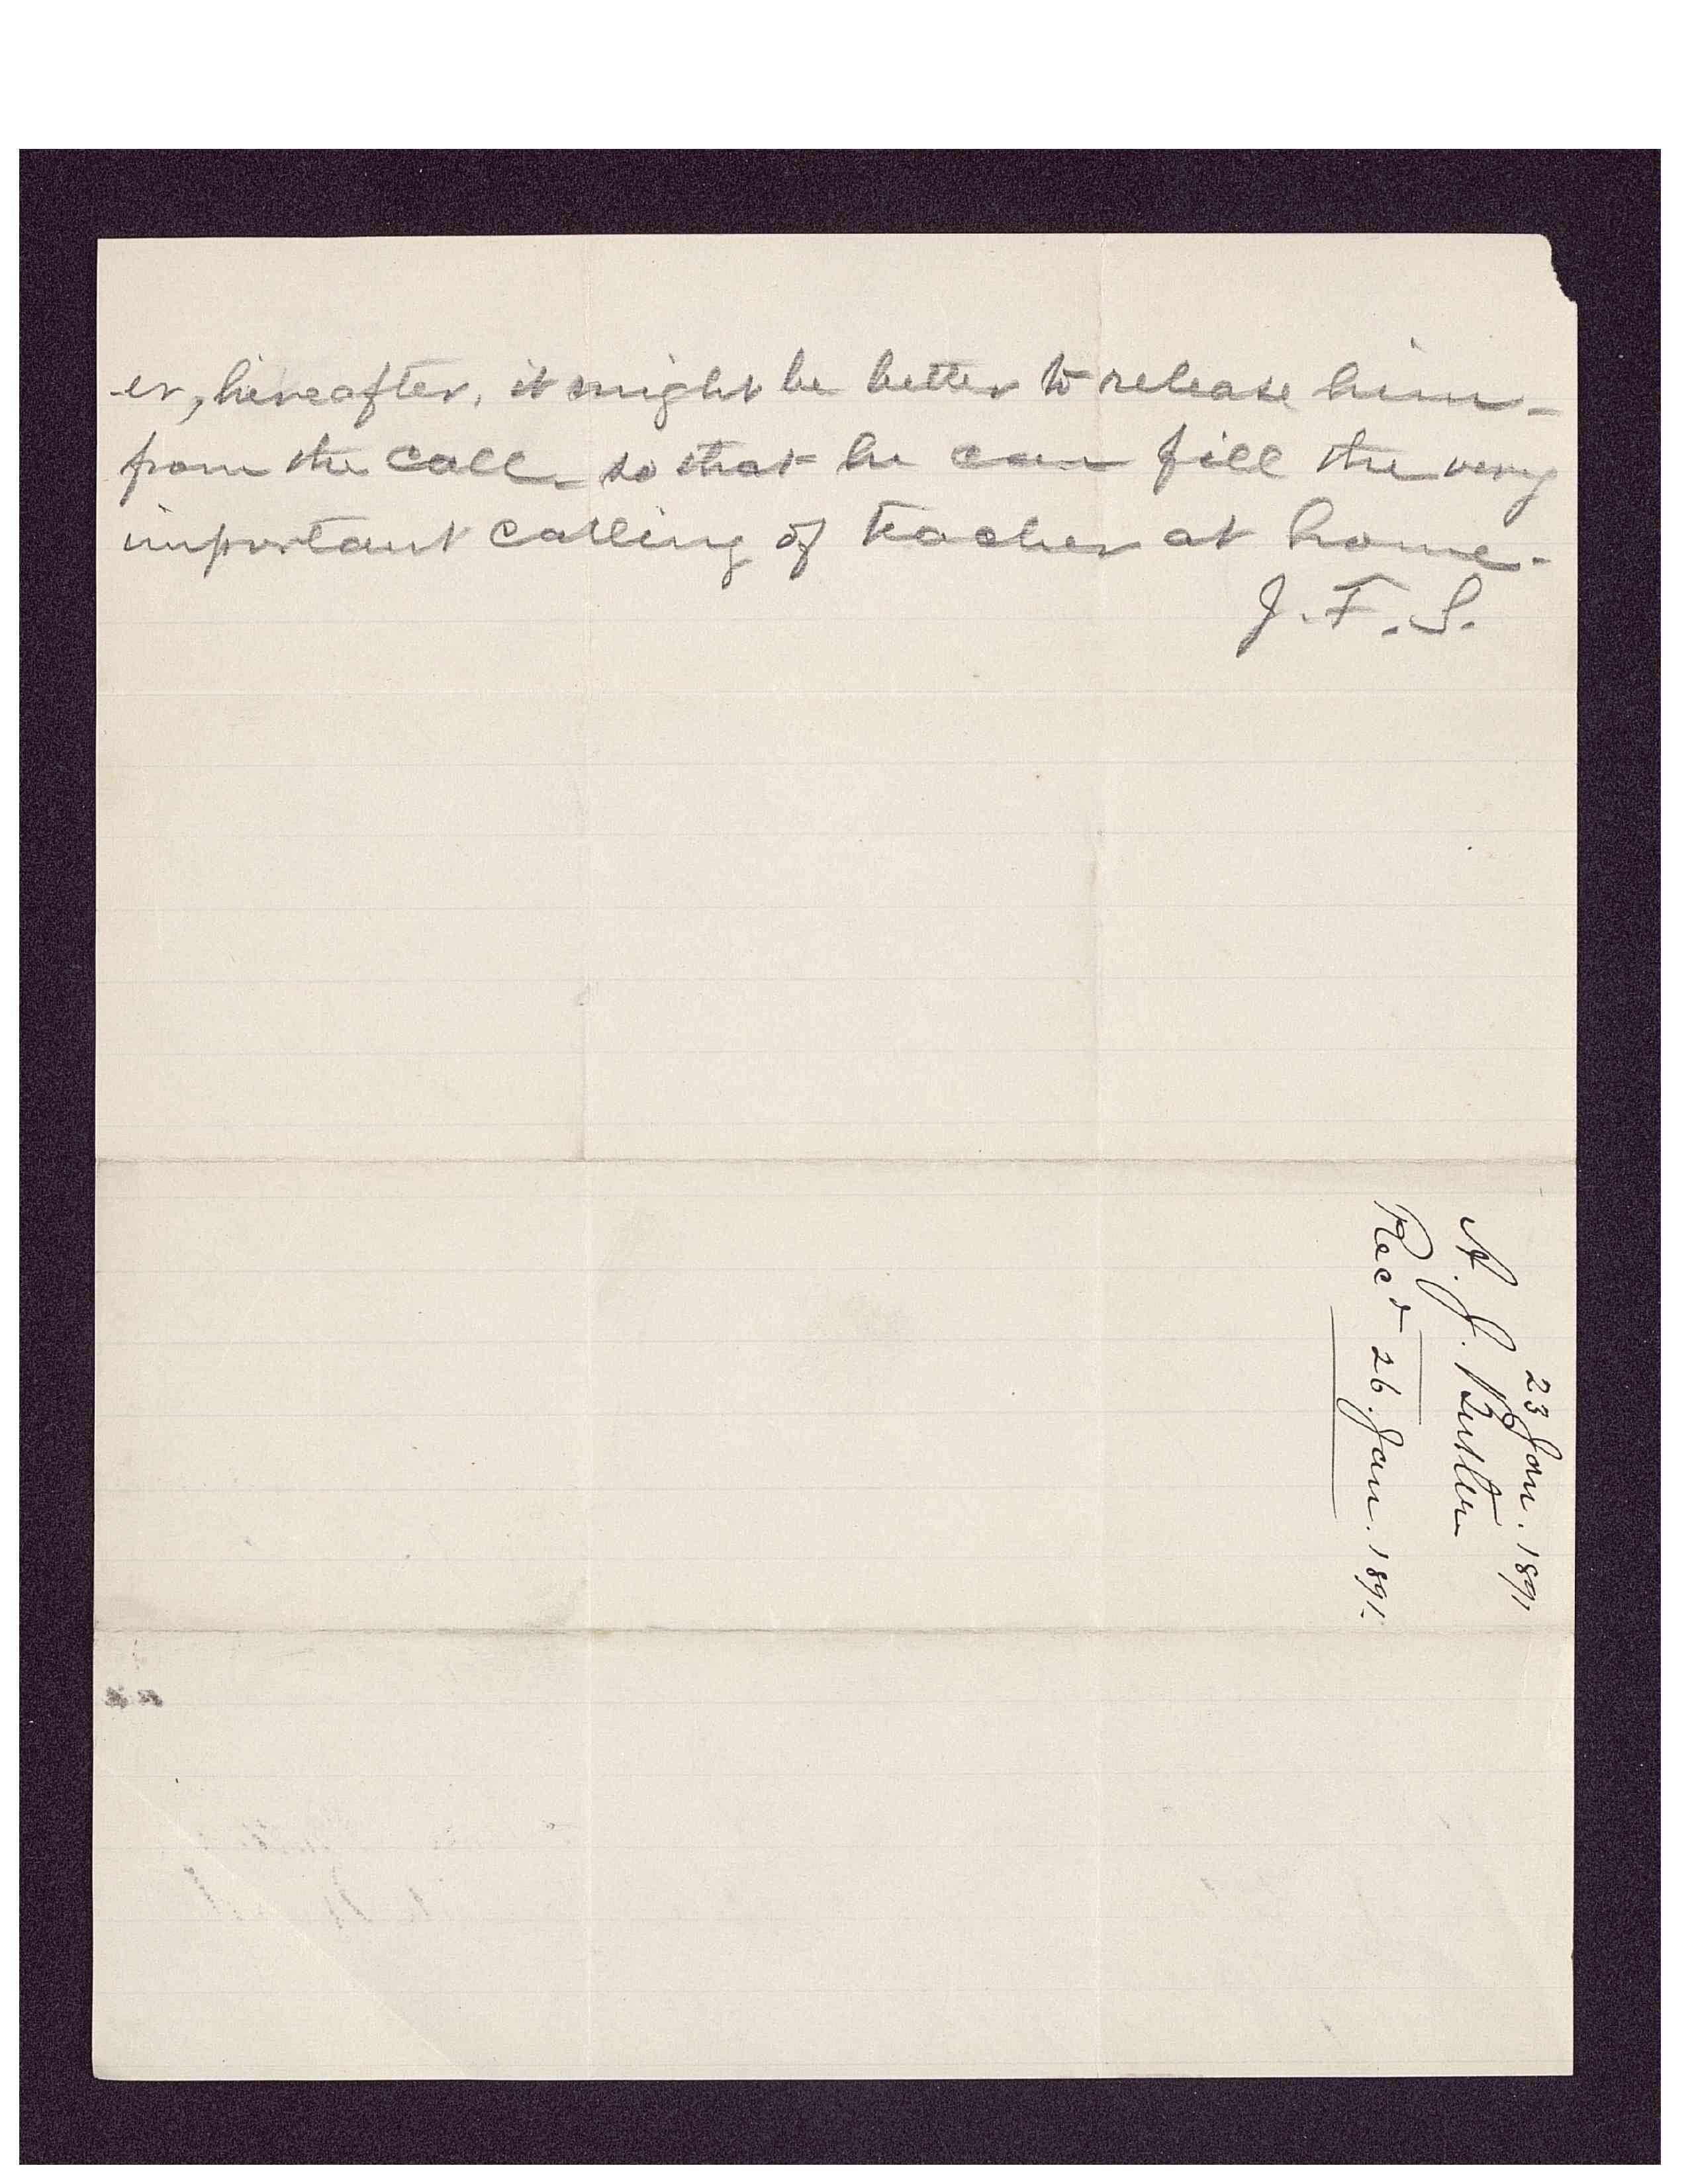 er, hereafter, it might be better to release him-
from the call - so that he can fill the very
important calling of teacher at home.
J. F. S.
23 Jan. 1891
A. J. Butler
Recd 26. Jan. 1891.